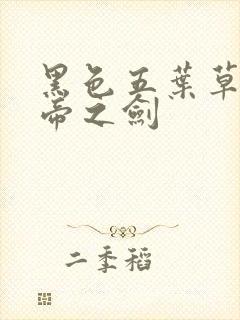 黑色五葉草
帝之劍
二季稻